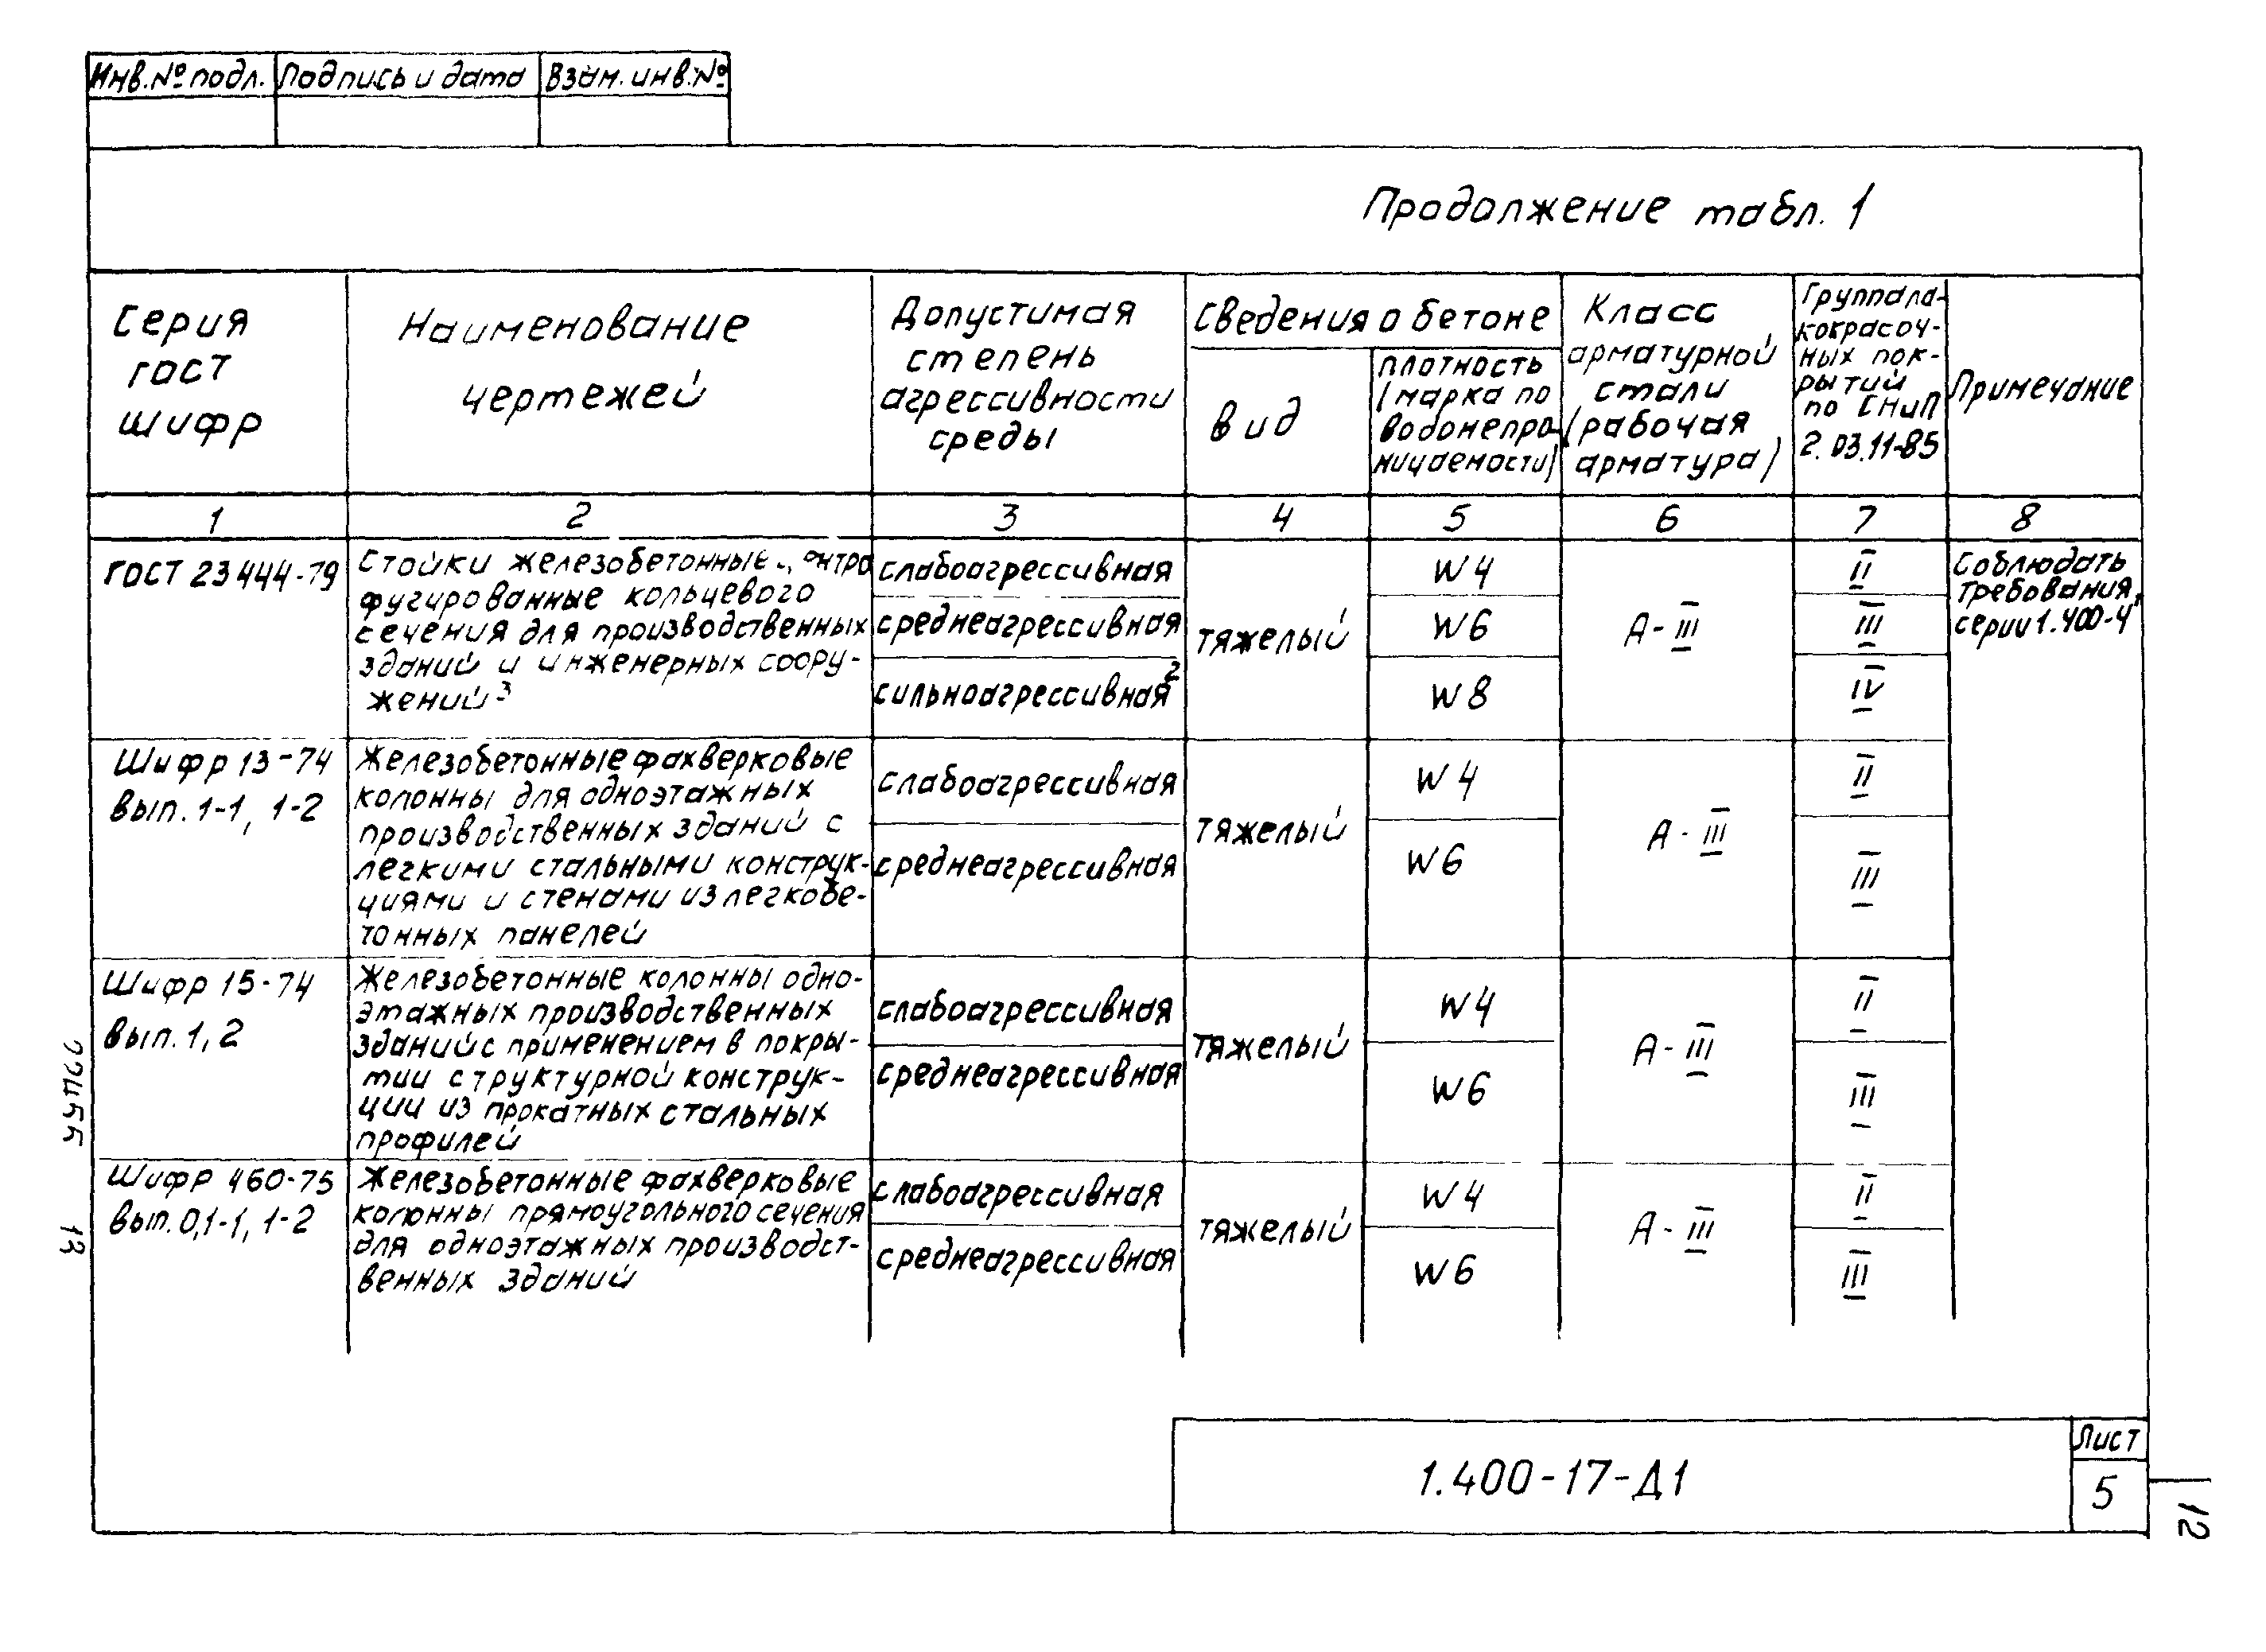 Инв. № подл. Подпись и дата Взам. инв. №
Продолжение табл. 1
Серия
ГОСТ
шифр
Наименование
чертежей
Допустимая
степень
агрессивности
среды
Сведения о бетоне
вид
плотность
(марка по
водонепро-
ницаемости)
Класс
арматурной
стали
(рабочая
арматура)
Группа ла-
кокрасоч-
ных пок-
рытий
по СНиП
2.03.11-85
Примечание
1 2 3 4 5 6 7 8
ГОСТ 23444-79
Стойки железобетонные центри-
фугированные кольцевого
сечения для производственных
зданий и инженерных соору-
жений³
слабоагрессивная
среднеагрессивная
сильноагрессивная²
тяжелый
W4
W6
W8
А-III
II
III
IV
Соблюдать
требования
серии 1.400-4
Шифр 13-74
вып. 1-1, 1-2
Железобетонные фахверковые
колонны для одноэтажных
производственных зданий с
легкими стальными конструк-
циями и стенами из легкобе-
тонных панелей
слабоагрессивная
среднеагрессивная
тяжелый
W4
W6
А-III
II
III
Шифр 15-74
вып. 1, 2
Железобетонные колонны одно-
этажных производственных
зданий с применением в покры-
тии структурной конструк-
ции из прокатных стальных
профилей
слабоагрессивная
среднеагрессивная
тяжелый
W4
W6
А-III
II
III
Шифр 460-75
вып. 0,1-1, 1-2
Железобетонные фахверковые
колонны прямоугольного сечения
для одноэтажных производст-
венных зданий
слабоагрессивная
среднеагрессивная
тяжелый
W4
W6
А-III
II
III
1.400-17-Д1
Лист
5
12
13